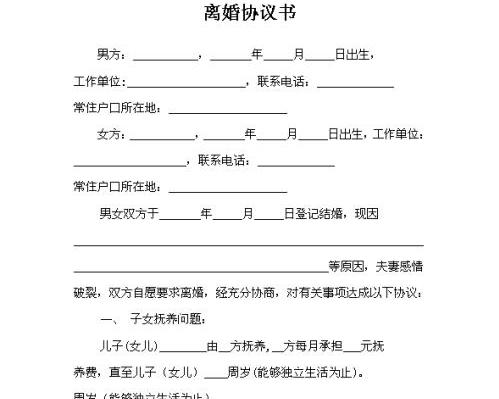 离婚协议书
男方：__________，______年____月____日出生，
工作单位:__________________，联系电话：____________
常住户口所在地：__________________
女方：__________，______年____月____日出生，工作单位：
__________________，联系电话：____________
常住户口所在地：__________________
男女双方于______年____月____日登记结婚，现因
____________________________________________________
______________________________________等原因，夫妻感情
破裂，双方自愿要求离婚，经充分协商，对有关事项达成以下协议：
一、 子女抚养问题：
儿子(女儿)_______由__方抚养,__方每月承担___元抚
养费，直至儿子（女儿）____周岁(能够独立生活为止)。
周岁（能够独立生活为止）